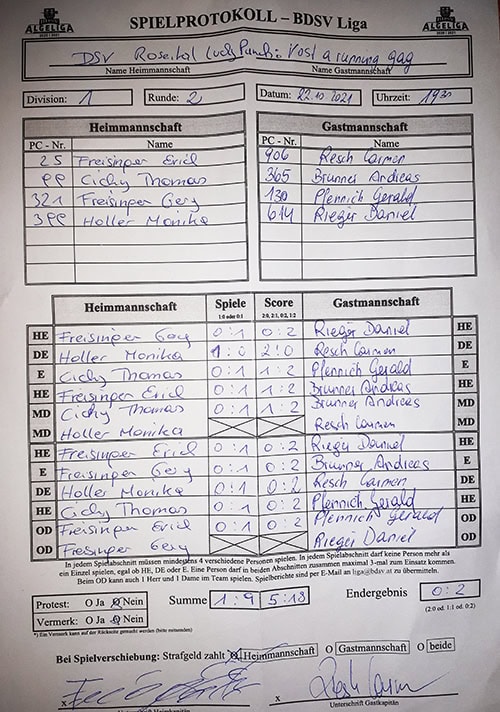 ALGELIGA
SPIELPROTOKOLL – BDSV Liga
ALGELIGA
DSV Rosental Lucky Punch : Host a running gag
Name Heimmannschaft Name Gastmannschaft
Division: 1 Runde: 2 Datum: 22.10.2021 Uhrzeit: 19 30
Heimmannschaft Gastmannschaft
PC - Nr. Name PC - Nr. Name
25 Freisinper Erich 906 Resch Carmen
99 Cichy Thomas 365 Brunner Andreas
321 Freisinper Gery 130 Pfennich Gerald
399 Holler Monika 614 Rieger Daniel
Heimmannschaft Spiele Score Gastmannschaft
1:0 oder 0:1 2:0, 2:1, 0:2, 1:2
HE Freisinper Gery 0:1 0:2 Rieger Daniel HE
DE Holler Monika 1:0 2:0 Resch Carmen DE
E Cichy Thomas 0:1 1:2 Pfennich Gerald E
HE Freisinper Erich 0:1 1:2 Brunner Andreas HE
MD Cichy Thomas 0:1 1:2 Brunner Andreas MD
MD Holler Monika Resch Carmen MD
HE Freisinper Erich 0:1 0:2 Rieger Daniel HE
E Freisinper Gery 0:1 0:2 Brunner Andreas E
DE Holler Monika 0:1 0:2 Resch Carmen DE
HE Cichy Thomas 0:1 0:2 Pfennich Gerald HE
OD Freisinper Erich 0:1 0:2 Pfennich Gerald OD
OD Freisinper Gery Rieger Daniel OD
In jedem Spielabschnitt müssen mindestens 4 verschiedene Personen spielen. In jedem Spielabschnitt darf keine Person mehr als
ein Einzel spielen, egal ob HE, DE oder E. Eine Person darf in beiden Abschnitten zusammen maximal 3-mal zum Einsatz kommen.
Beim OD kann auch 1 Herr und 1 Dame im Team spielen. Spielberichte sind per E-Mail an liga@bdsv.at zu übermitteln.
Protest: O Ja O Nein Summe 1:9 5:18 Endergebnis 0:2
Vermerk: O Ja O Nein (2:0 od. 1:1 od. 0:2)
*) Ein Vermerk kann auf der Rückseite gemacht werden (bitte ausseiten)
Bei Spielverschiebung: Strafgeld zahlt O Heimmannschaft O Gastmannschaft O beide
x x Resch Carmen
Unterschrift Heimkapitän Unterschrift Gastkapitän